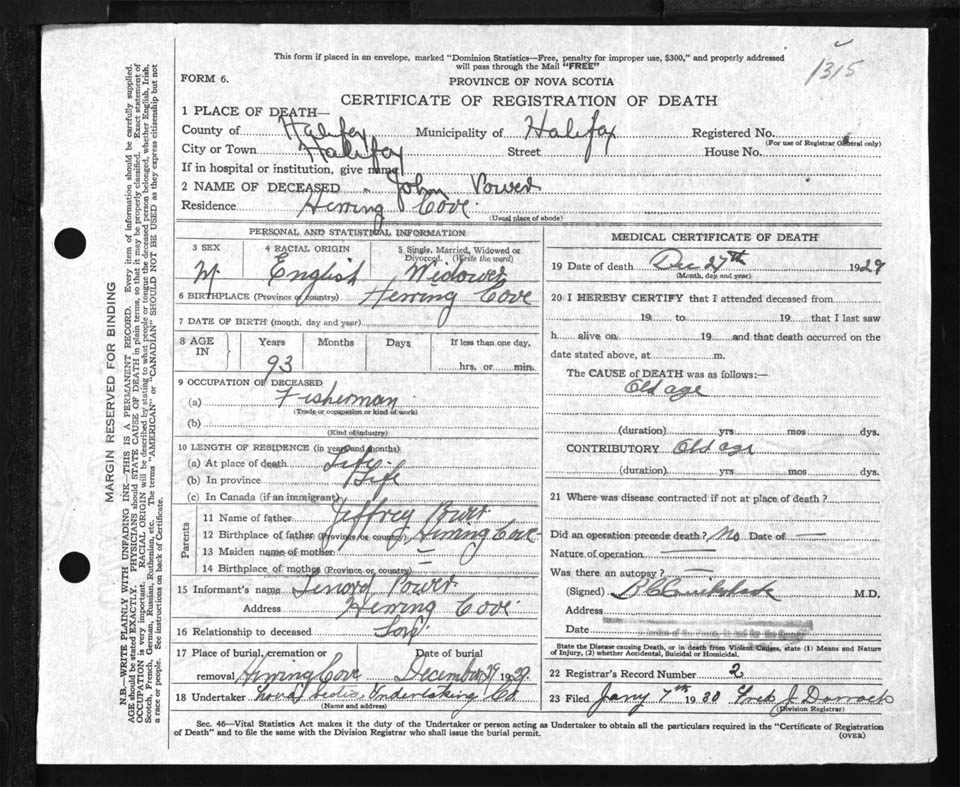 This form if placed in an envelope, marked "Dominion Statistics—Free, penalty for improper use, $300," and properly addressed
will pass through the Mail "FREE"
1315
FORM 6.
PROVINCE OF NOVA SCOTIA
CERTIFICATE OF REGISTRATION OF DEATH
1 PLACE OF DEATH—
County of Halifax Municipality of Halifax Registered No.
(For use of Registrar General only)
City or Town Halifax Street House No.
If in hospital or institution, give name
2 NAME OF DECEASED John Power
Residence Herring Cove.
(Usual place of abode)
PERSONAL AND STATISTICAL INFORMATION
3 SEX 4 RACIAL ORIGIN 5 Single, Married, Widowed or
Divorced. (Write the word)
M English Widower
6 BIRTHPLACE (Province or country) Herring Cove
7 DATE OF BIRTH (month, day and year)
8 AGE IN Years Months Days If less than one day,
93 hrs. or min.
9 OCCUPATION OF DECEASED
(a) Fisherman
(Trade or occupation or kind of work)
(b)
(Kind of industry)
10 LENGTH OF RESIDENCE (in years and months)
(a) At place of death Life
(b) In province Life
(c) In Canada (if an immigrant)
Parents
11 Name of father Jeffrey
12 Birthplace of father (Province or country) Herring Cove
13 Maiden name of mother —
14 Birthplace of mother (Province or country) —
15 Informant's name Power
Address Herring Cove.
16 Relationship to deceased Son
17 Place of burial, cremation or Date of burial
removal Herring Cove December 29 1929
18 Undertaker Nova Scotia Undertaking Co
(Name and address)
MEDICAL CERTIFICATE OF DEATH
19 Date of death Dec 27th 1929
(Month, day and year)
20 I HEREBY CERTIFY that I attended deceased from
19 to 19 that I last saw
h alive on 19 and that death occurred on the
date stated above, at m.
The CAUSE of DEATH was as follows:—
Old age
(duration) yrs mos dys.
CONTRIBUTORY Old age
(duration) yrs mos dys.
21 Where was disease contracted if not at place of death?
Did an operation precede death? No Date of —
Nature of operation —
Was there an autopsy? —
(Signed) M.D.
Address
Date
State the Disease causing Death, or in death from Violent Causes, state (1) Means and Nature
of Injury, (2) whether Accidental, Suicidal or Homicidal.
22 Registrar's Record Number 2
23 Filed Jany 7th 1930
(Division Registrar)
Sec. 46—Vital Statistics Act makes it the duty of the Undertaker or person acting as Undertaker to obtain all the particulars required in the "Certificate of Registration
of Death" and to file the same with the Division Registrar who shall issue the burial permit.
(OVER)
MARGIN RESERVED FOR BINDING
N.B.—WRITE PLAINLY WITH UNFADING INK—THIS IS A PERMANENT RECORD. Every item of information should be carefully supplied.
AGE should be stated EXACTLY. PHYSICIANS should STATE CAUSE OF DEATH in plain terms, so that it may be properly classified. Exact statement of
OCCUPATION is very important. RACIAL ORIGIN will be described by stating to what people or tongue the deceased person belonged, whether English, Irish,
Scotch, French, German, Russian, Ruthenian, etc. The terms "AMERICAN" or "CANADIAN" SHOULD NOT BE USED as they express citizenship but not
a race or people. See instructions on back of Certificate.